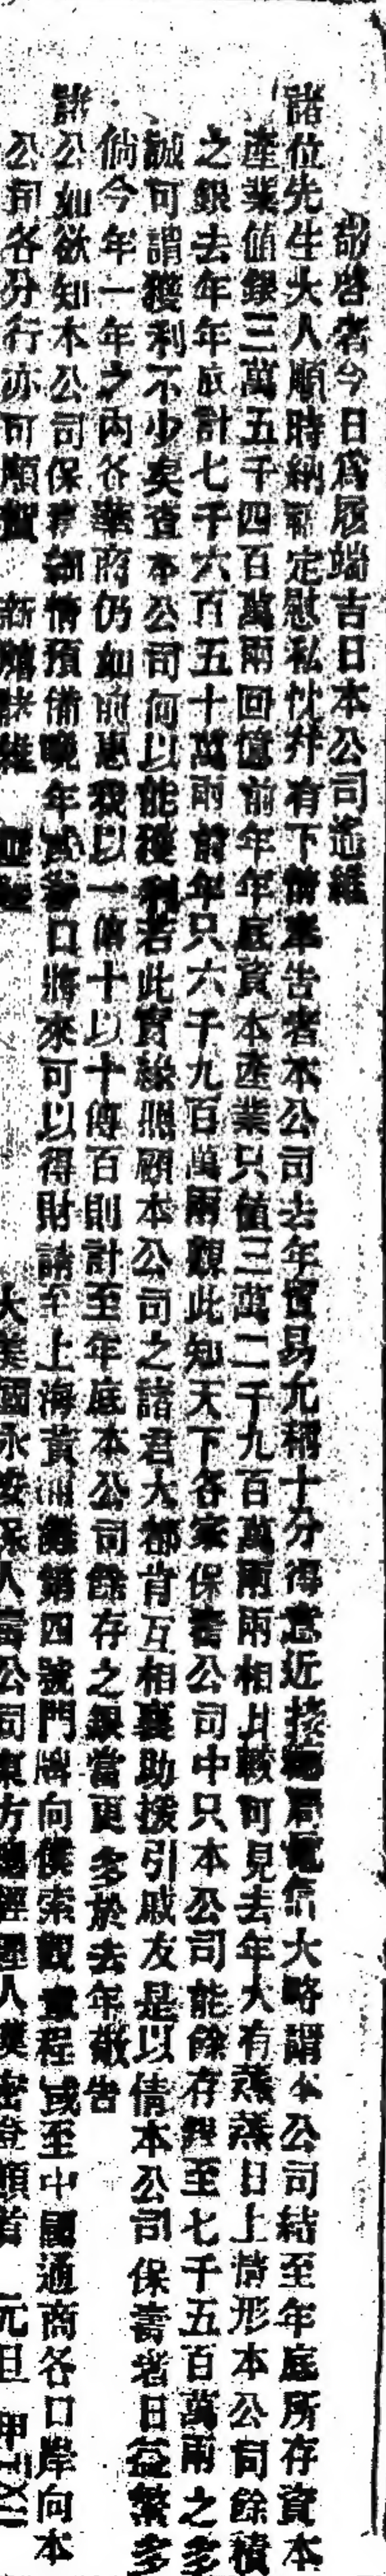 敬啓者今日爲履端吉日本公司遙維
諸位先生大人順時納祜定慰私忱幷有下情奉告者本公司去年貿易尤稱十分得意近接總局電信大略謂本公司結至年底所存資本
產業値銀三萬五千四百萬兩回億前年年底資本產業只値三萬二千九百萬兩兩相比較可見去年大有蒸蒸日上情形本公司餘積
之銀去年年底計七千六百五十萬兩前年只六千九百萬兩觀此知天下各家保壽公司中只本公司能餘存銀至七千五百萬兩之多
誠可謂獲利不少矣查本公司何以能獲利若此實緣照顧本公司之諸君大都肯互相襄助援引戚友是以倩本公司保壽者日益繁多
倘今年一年之內各華商仍如前惠我以一傳十以十傳百則計至年底本公司餘存之銀當更多於去年敬告
諸公如欲知本公司保壽細情預備晚年資養口將來可以得財請至上海黃浦灘第四號門牌向僕索觀章程或至中國通商各口岸向本
公司各分行亦可順賀　新禧統維　　大美國永安保人壽公司東方總經理人　密　頓首　元旦